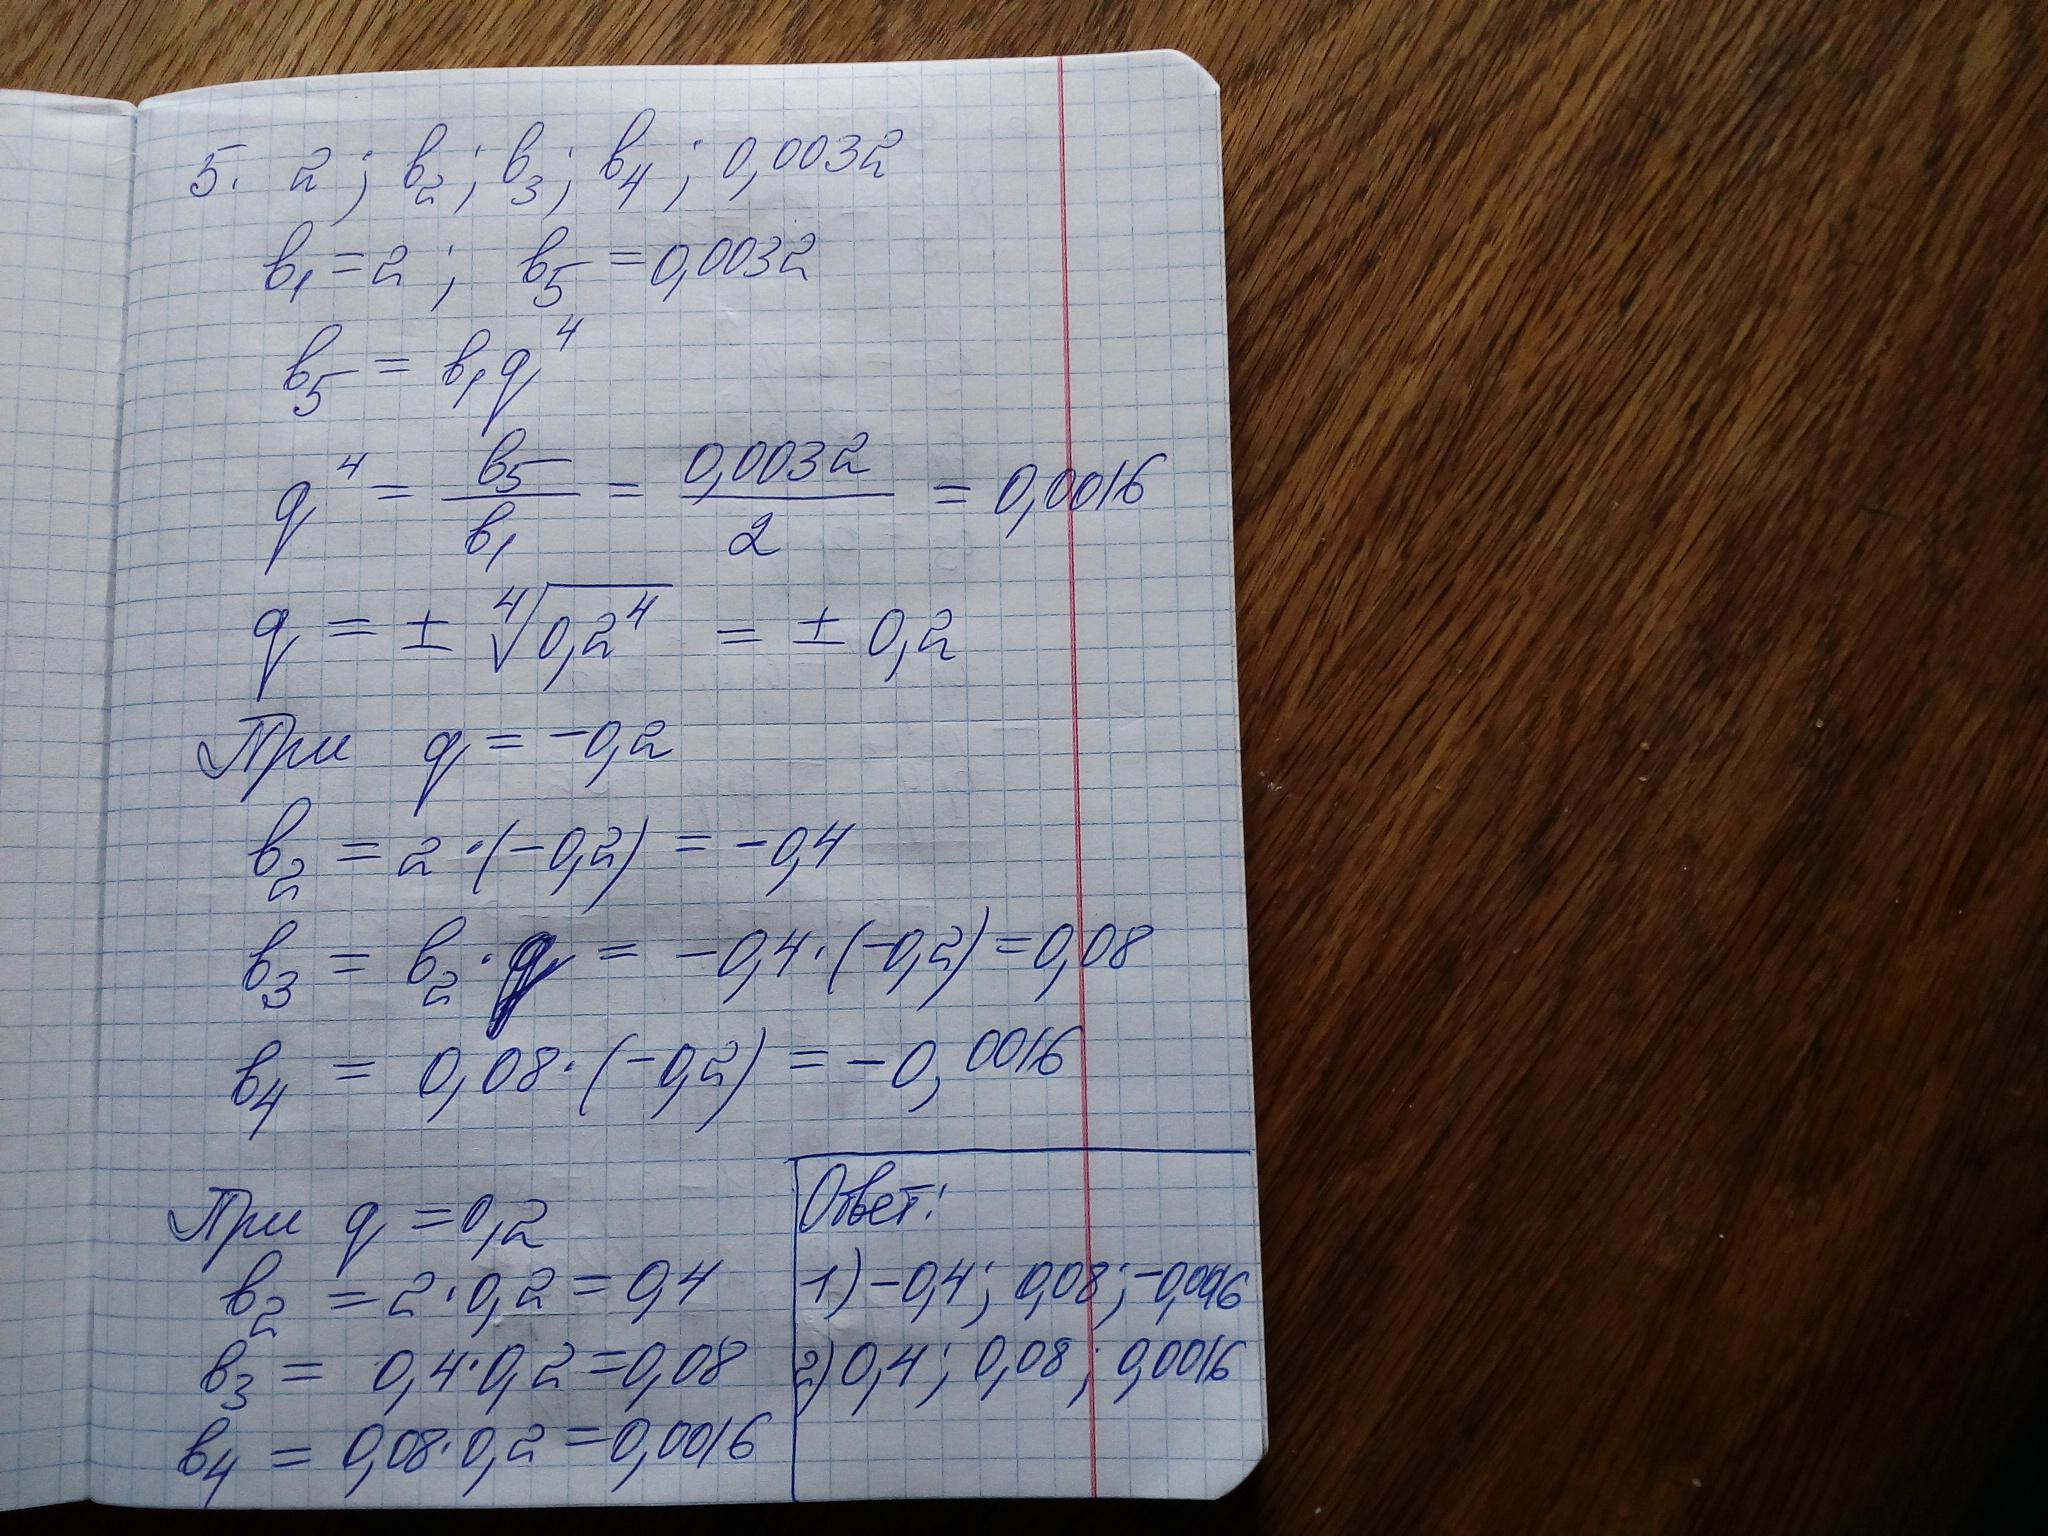 5. 2; b₂; b₃; b₄; 0,0032
b₁ = 2; b₅ = 0,0032
b₅ = b₁q⁴
q⁴ = b₅/b₁ = 0,0032/2 = 0,0016
q = ± ⁴√0,2⁴ = ± 0,2
При q = -0,2
b₂ = 2·(-0,2) = -0,4
b₃ = b₂·q = -0,4·(-0,2) = 0,08
b₄ = 0,08·(-0,2) = -0,0016
При q = 0,2
b₂ = 2·0,2 = 0,4
b₃ = 0,4·0,2 = 0,08
b₄ = 0,08·0,2 = 0,0016
Ответ:
1) -0,4; 0,08; -0,0016
2) 0,4; 0,08; 0,0016